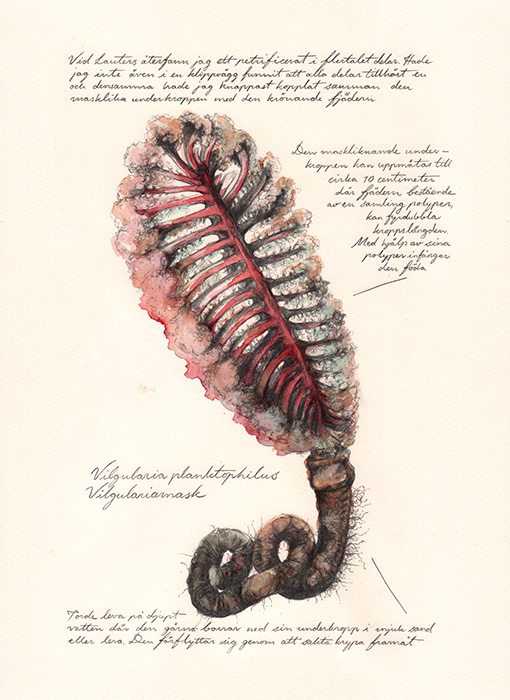 Vid Lauters återfann jag ett petrificerat i flertalet delar. Hade
jag inte även i en klippvägg funnit att alla delar tillhört en
och densamma hade jag knappast kopplat samman den
masklika underkroppen med den krönande fjädern
Den maskliknande under-
kroppen kan uppmätas till
cirka 10 centimeter
där fjädern, bestående
av en samling polyper,
kan fyrdubbla
kroppslängden.
Med hjälp av sina
polyper infångar
den föda
Vilgularia planktophilus
Vilgulariamask
Torde leva på djupt
vatten där den gärna borrar ned sin underkropp i mjuk sand
eller lera. Den förflyttar sig genom att sakta krypa framåt